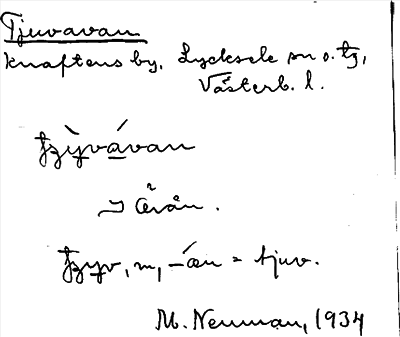 Tjuvavan
Knaftens by, Lycksele sn o. tg,
Västerb. l.
tzỳvávan
Öråån.
tzyv, m, -áen = tjuv.
M. Neuman, 1934